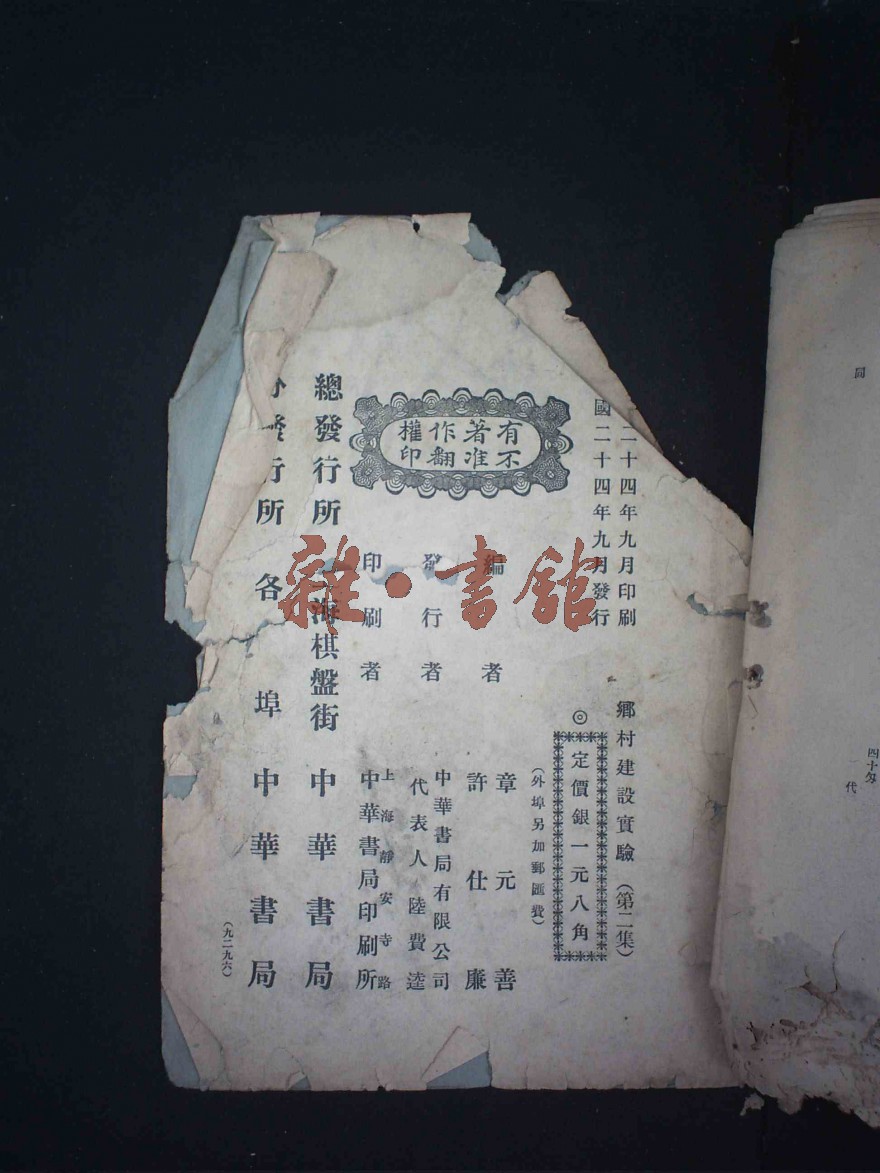 二十四年九月印刷
國二十四年九月發行
鄉村建設實驗（第二集）
◎定價銀一元八角
（外埠另加郵匯費）
有著作權
不准翻印
編者
章元善
許仕廉
發行者
中華書局有限公司
代表人陸費逵
印刷者
上海靜安寺路
中華書局印刷所
總發行所 海棋盤街 中華書局
發行所 各埠中華書局
（九二九六）
雜·書館
同
四十匆
代